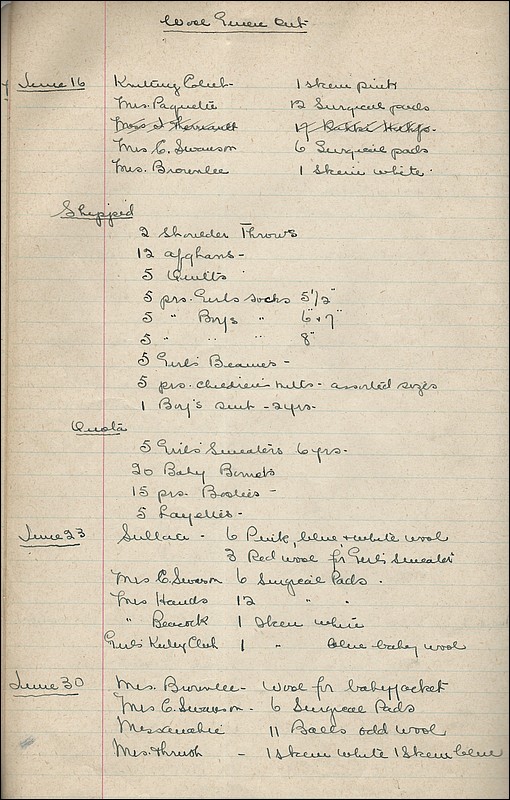 Wool Given Out
June 16 Knitting Club - 1 skein pink
Mrs. Paquette 12 Surgical pads
17 Khaki Hnkfs.
Mrs C. Swanson 6 Surgical pads
Mrs. Brownlee 1 Skein white.
Shipped
2 Shoulder Throws
12 afghans -
5 Quilts
5 prs. Girls socks 5 1/2"
5 " Boys " 6" + 7"
5 " " " 8"
5 Girls' Beanies -
5 prs. children's mitts - assorted sizes
1 Boy's suit - 2 yrs.
Quota
5 Girls' Sweaters 6 yrs.
20 Baby Bonnets
15 prs. Booties -
5 Layettes -
June 23 - 6 Pink, blue, + white wool
3 Red wool for Girls' Sweater
Mrs C. Swanson 6 Surgical Pads.
Mrs Hands 12 " "
" Beacock 1 Skein white
Girls Club 1 " blue baby wool
June 30 Mrs. Brownlee - Wool for baby jacket
Mrs C. Swanson - 6 Surgical Pads
11 Balls odd wool
Mrs. Thrush - 1 Skein white 1 Skein blue